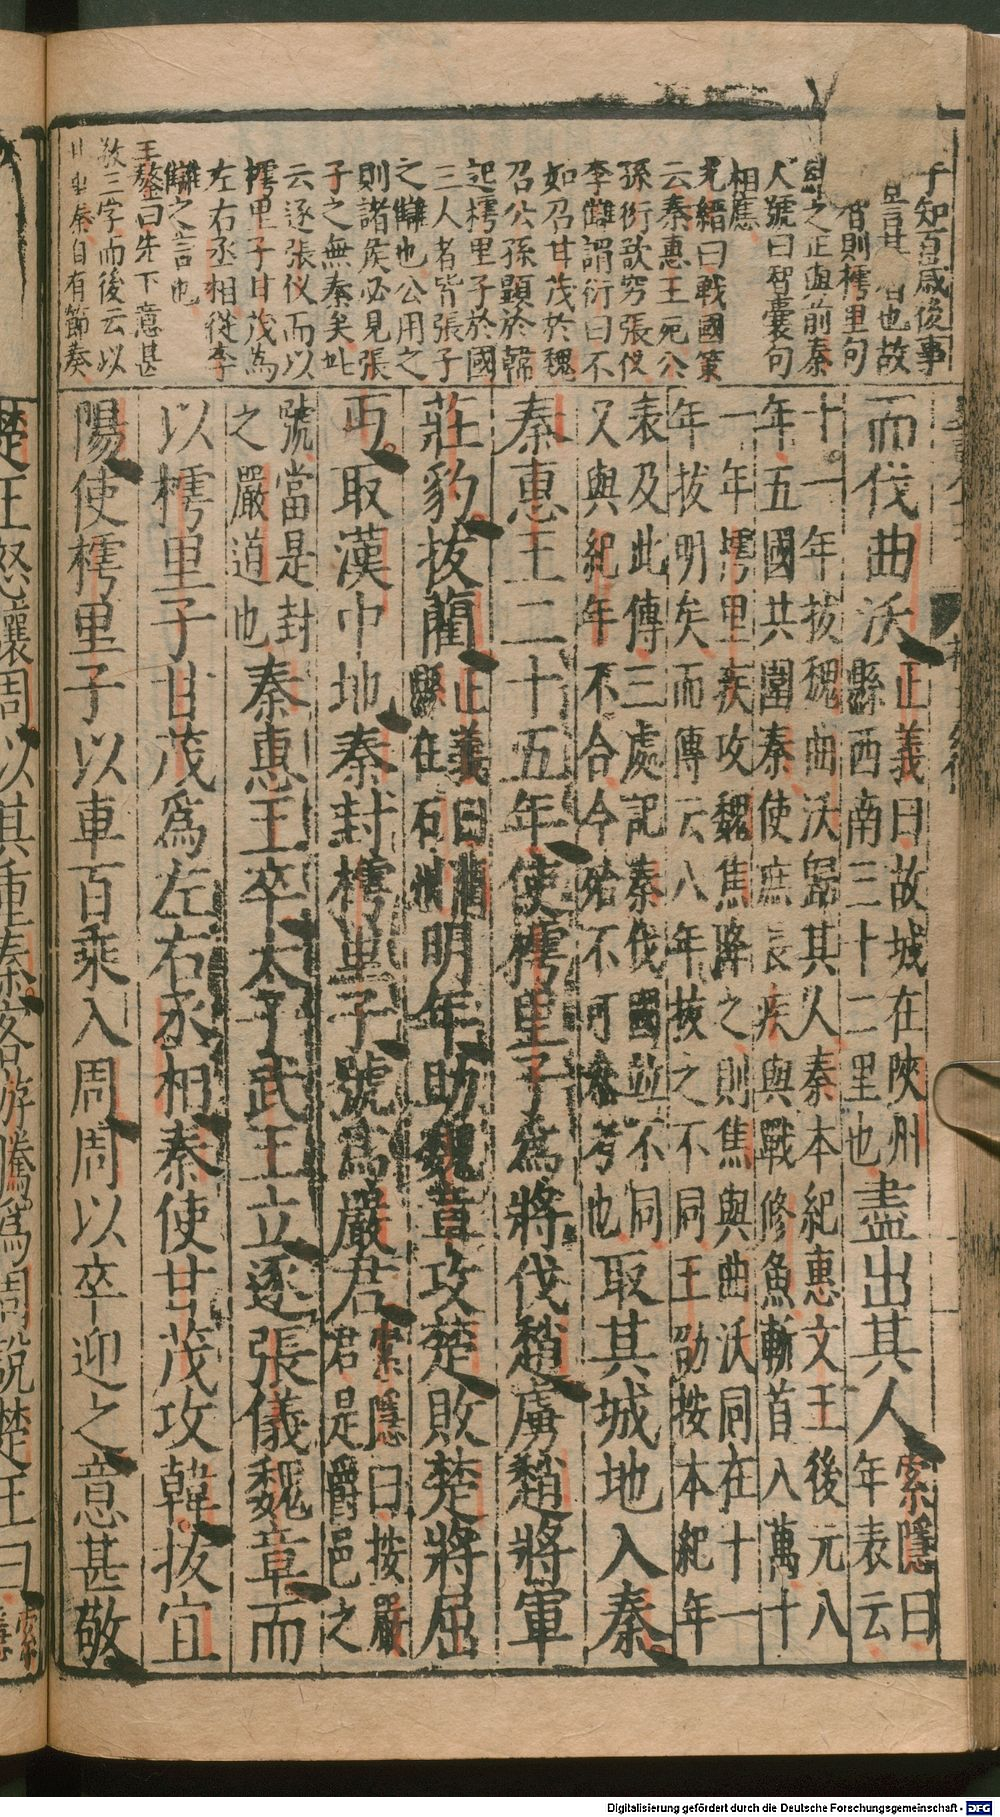 子知百歲後事
言其
也故
則樗里句
之正與前秦
人號曰智囊句
相應
光縉曰戰國策
云秦惠王死公
孫衍欲窮張仪
李讎謂衍曰不
如召甘茂於魏
召公孫顯於韓
起樗里子於國
三人者皆張子
之讎也公用之
則諸矦必見張
子之無秦矣此
云逐張仪而以
樗里子甘茂爲
左右丞相從李
讎之言也
王鏊曰先下意甚
敬三字而後云以
秦自有節奏
而伐曲沃
正義曰故城在陝州
縣西南三十二里也
盡出其人
索隱曰
年表云
十一年拔魏曲沃歸其人秦本紀惠文王後元八
年五國共圍秦使庶長疾與戰修魚斬首八萬十
一年樗里疾攻魏焦降之則焦與曲沃同在十一
年拔明矣而傳云八年拔之不同王劭按本紀年
表及此傳三處記秦伐國並不同
又與紀年不合今殆不可考也
取其城地入秦
秦惠王二十五年使樗里子爲將伐趙虜趙將軍
莊豹拔藺
正義曰藺
縣在石州
明年助魏章攻楚敗楚將屈
丐取漢中地秦封樗里子號爲嚴君
索隱曰按嚴
君是爵邑之
號當是封
之嚴道也
秦惠王卒太子武王立逐張儀魏章而
以樗里子甘茂爲左右丞相秦使甘茂攻韓拔宜
陽使樗里子以車百乘入周周以卒迎之意甚敬
楚王怒讓周以其重秦客游騰爲周說楚王曰
Digitalisierung gefördert durch die Deutsche Forschungsgemeinschaft - DFG